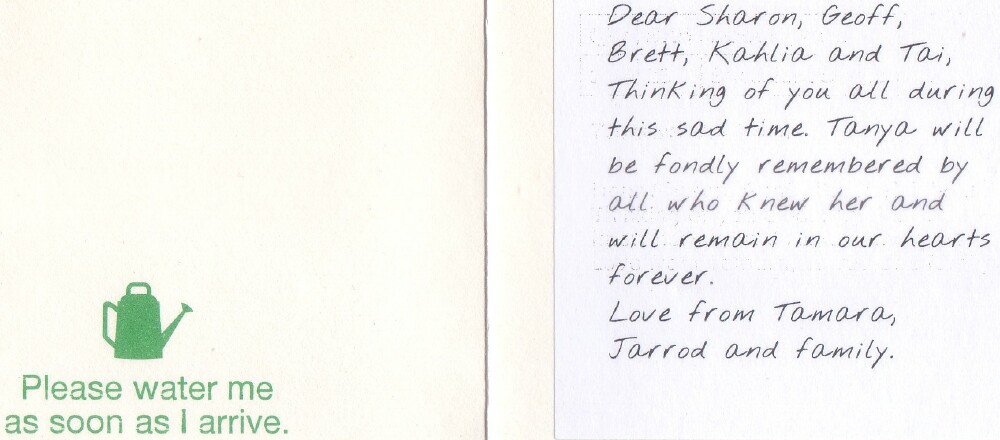 Please water me
as soon as I arrive.
Dear Sharon, Geoff,
Brett, Kahlia and Tai,
Thinking of you all during
this sad time. Tanya will
be fondly remembered by
all who knew her and
will remain in our hearts
forever.
Love from Tamara,
Jarrod and family.